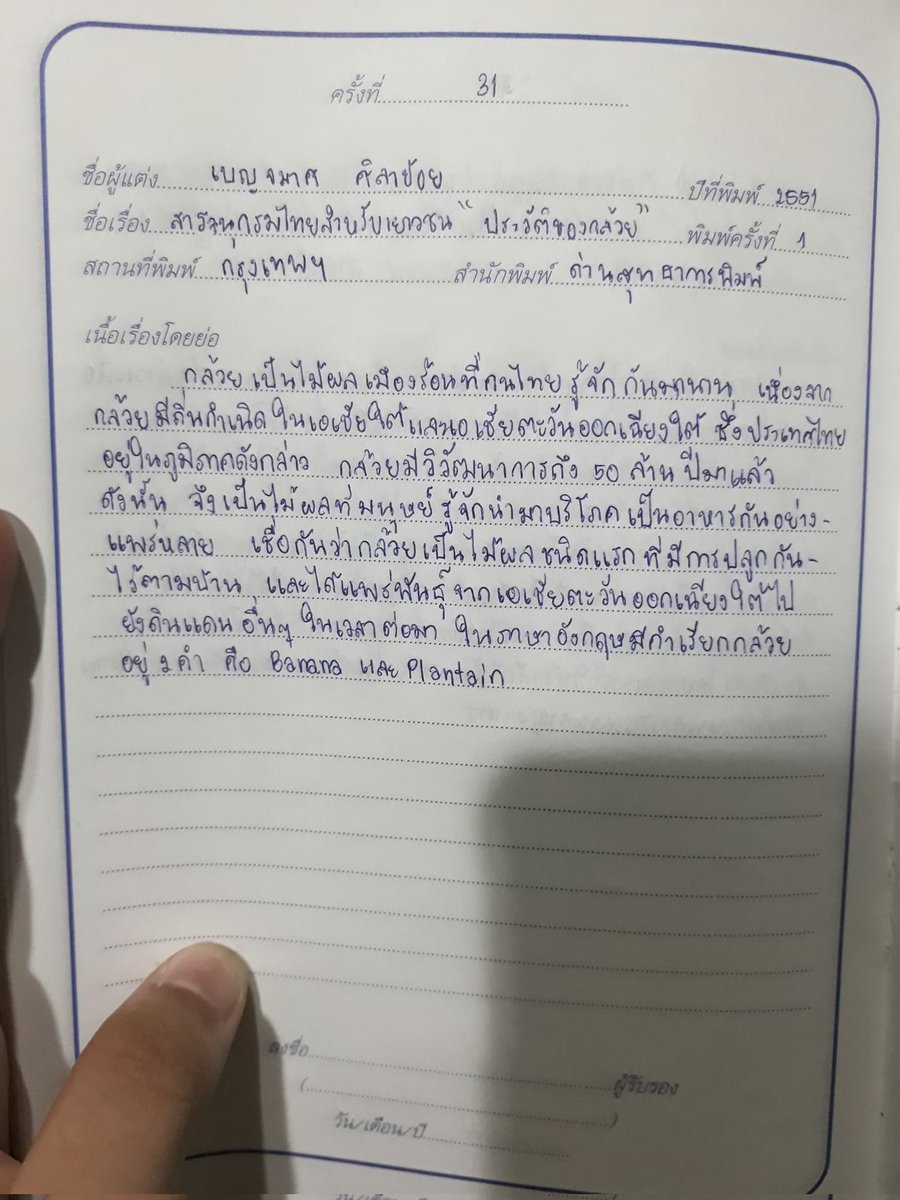 ครั้งที่ 31
ชื่อผู้แต่ง เบญจมาศ ศิลาย้อย ปีที่พิมพ์ 2551
ชื่อเรื่อง สารานุกรมไทยสำหรับเยาวชน "ประวัติของกล้วย" พิมพ์ครั้งที่ 1
สถานที่พิมพ์ กรุงเทพฯ สำนักพิมพ์ ด่านสุทธาการพิมพ์
เนื้อเรื่องโดยย่อ
กล้วย เป็นไม้ผล เมืองร้อนที่คนไทย รู้จัก กันมานาน เนื่องจาก
กล้วย มีถิ่นกำเนิด ในเอเชียใต้และเอเชียตะวันออกเฉียงใต้ ซึ่งประเทศไทย
อยู่ในภูมิภาคดังกล่าว กล้วยมีวิวัฒนาการถึง 50 ล้าน ปีมาแล้ว
ดังนั้น จึงเป็นไม้ผลที่มนุษย์ รู้จักนำมาบริโภค เป็นอาหารกันอย่าง-
แพร่หลาย เชื่อกันว่ากล้วยเป็นไม้ผลชนิดแรก ที่มีการปลูกกัน-
ไว้ตามบ้าน และได้แพร่พันธุ์จากเอเชียตะวันออกเฉียงใต้ไป
ยังดินแดนอื่นๆ ในเวลาต่อมา ในภาษาอังกฤษมีคำเรียกกล้วย
อยู่ 2 คำ คือ Banana และ Plantain
ลงชื่อ ผู้รับรอง
( )
วัน/เดือน/ปี
วัน/เดือน